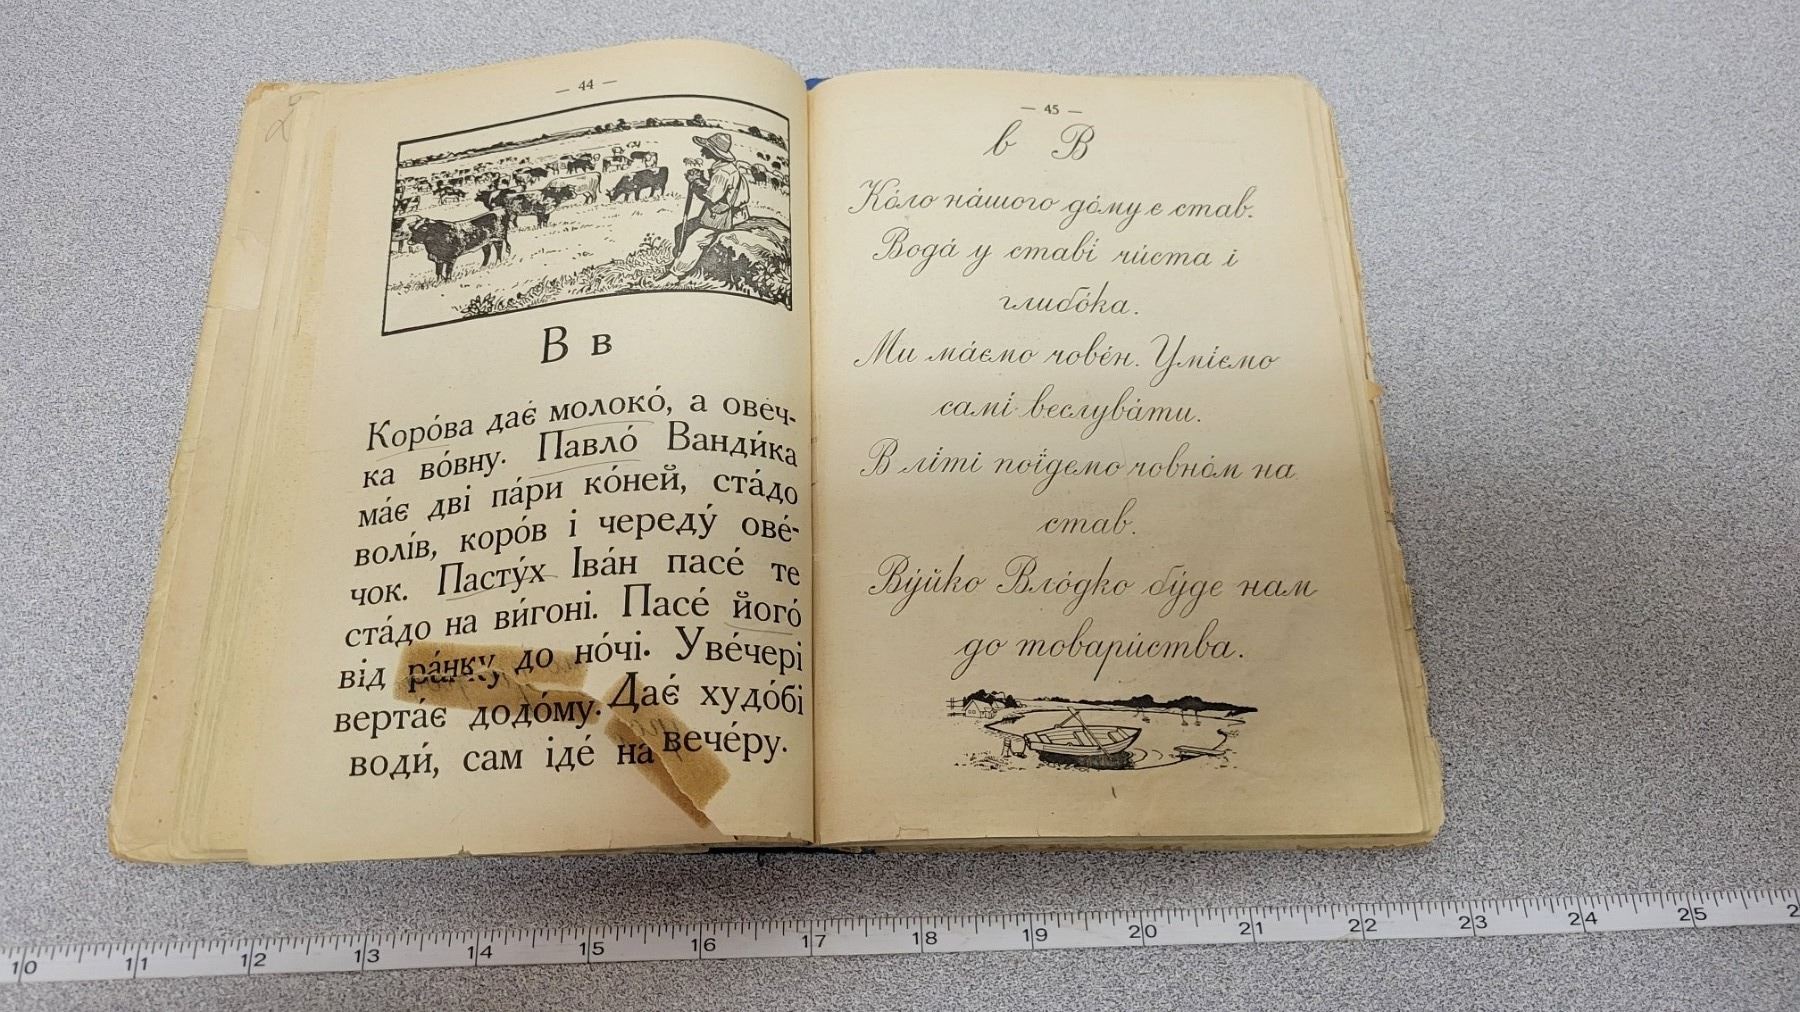 — 44 —
В в
Коро́ва дає́ молоко́, а ове́ч-
ка во́вну. Павло́ Ванди́ка
ма́є дві па́ри ко́ней, ста́до
волі́в, коро́в і череду́ ове́-
чок. Пасту́х Іва́н пасе́ те
ста́до на ви́гоні. Пасе́ його́
від ра́нку до но́чі. Уве́чері
верта́є додо́му. Дає́ худо́бі
води́, сам іде́ на вече́ру.
— 45 —
в В
Ко́ло на́шого до́му є став.
Вода́ у ставі́ чи́ста і
глибо́ка.
Ми ма́ємо чове́н. Умі́ємо
самі́ веслува́ти.
В лі́ті пої́демо човно́м на
став.
Ву́йко Вло́дко бу́де нам
до товари́ства.
10 11 12 13 14 15 16 17 18 19 20 21 22 23 24 25